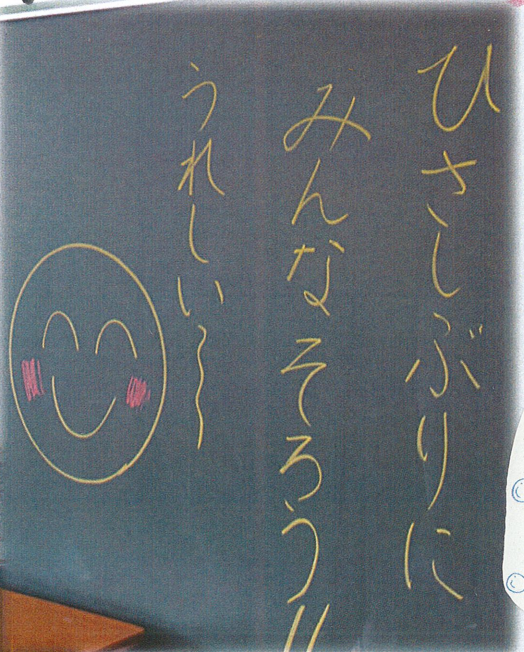 ひさしぶりに
みんなそろう!!
うれしい〜